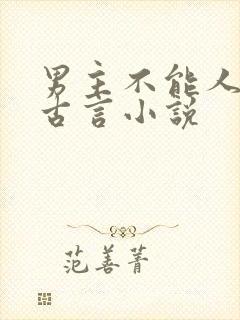 男主不能人
古言小说
范善菁